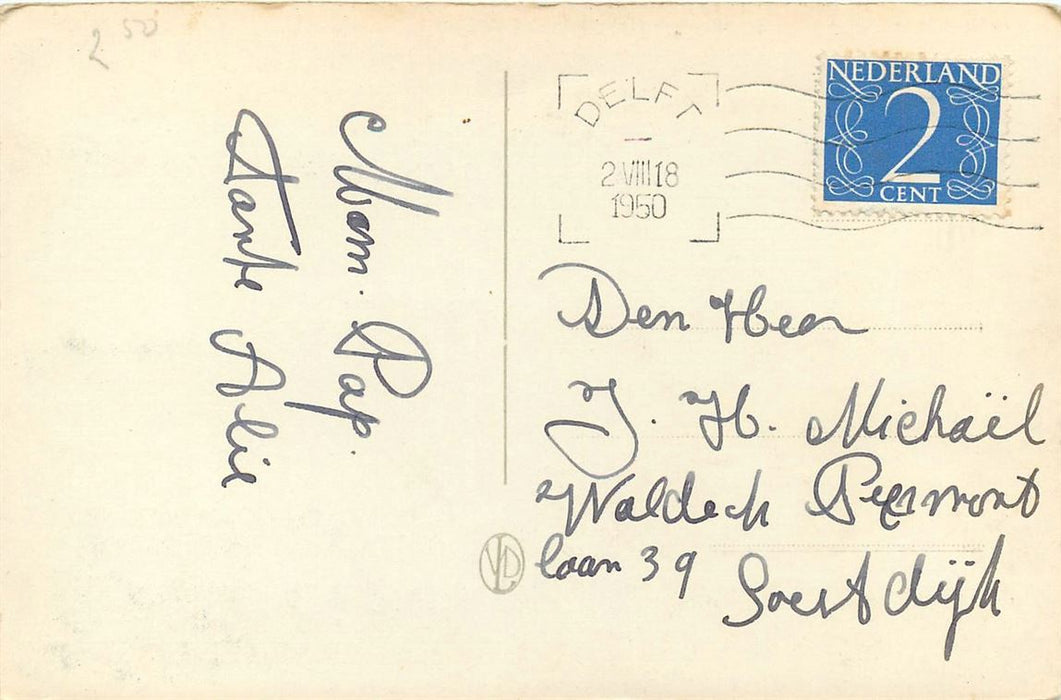 2 50
Mam. Pap.
Tante Alie
DELFT
2 VIII 18
1950
NEDERLAND
2
CENT
Den Heer
J. H. Michaël
Waldeck Pyrmont
laan 39 Soestdijk
VD